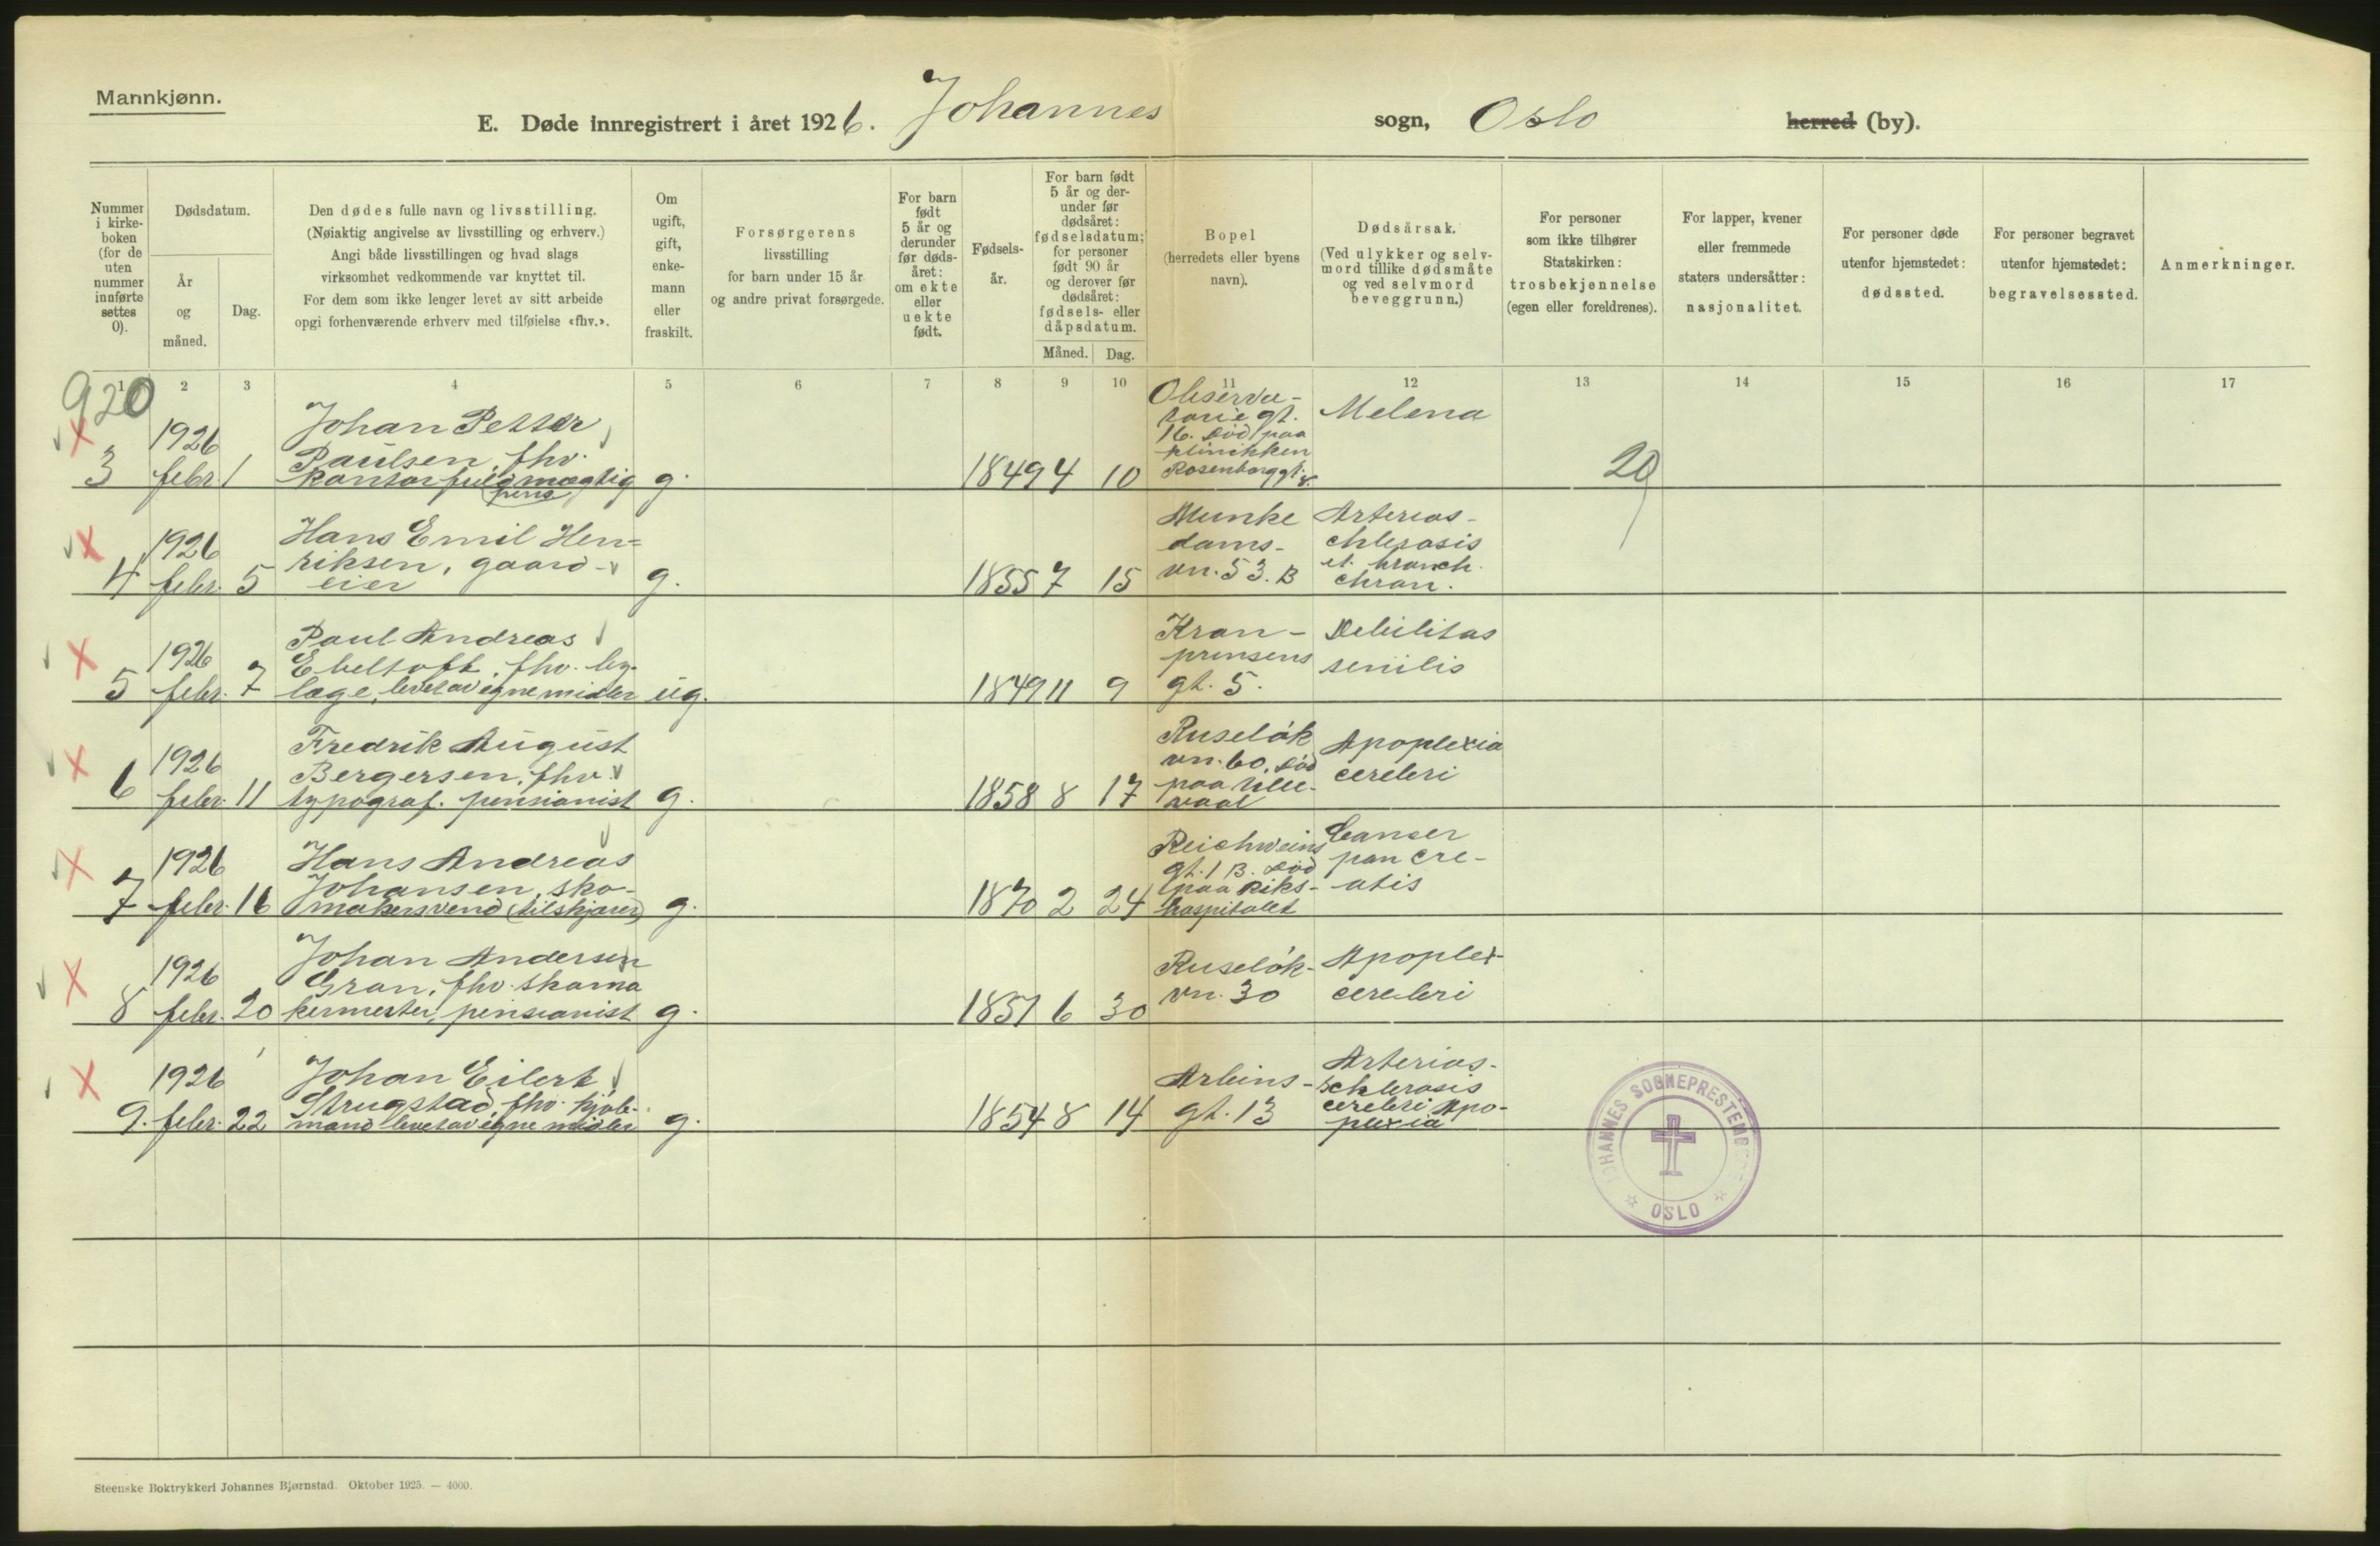 Mannkjønn.
E. Døde innregistrert i året 1926. Johannes sogn, Oslo herred (by).
Nummer i kirke-boken (for de uten nummer innførte settes 0).
Dødsdatum.
År og måned.
Dag.
Den dødes fulle navn og livsstilling.
(Nøiaktig angivelse av livsstilling og erhverv.)
Angi både livsstillingen og hvad slags
virksomhet vedkommende var knyttet til.
For dem som ikke lenger levet av sitt arbeide
opgi forhenværende erhverv med tilføielse «fhv.».
Om ugift, gift, enke-mann eller fraskilt.
Forsørgerens
livsstilling
for barn under 15 år
og andre privat forsørgede.
For barn født 5 år og derunder før døds-året: om ekte eller uekte født.
Fødsels-år.
For barn født 5 år og der-under før dødsåret: fødselsdatum; for personer født 90 år og derover før dødsåret: fødsels- eller dåpsdatum.
Måned. Dag.
Bopel
(herredets eller byens
navn).
Dødsårsak.
(Ved ulykker og selv-
mord tillike dødsmåte
og ved selvmord
beveggrunn.)
For personer
som ikke tilhører
Statskirken:
trosbekjennelse
(egen eller foreldrenes).
For lapper, kvener
eller fremmede
staters undersåtter:
nasjonalitet.
For personer døde
utenfor hjemstedet:
dødssted.
For personer begravet
utenfor hjemstedet:
begravelsessted.
Anmerkninger.
1 2 3 4 5 6 7 8 9 10 11 12 13 14 15 16 17
920
3 1926 febr. 1
Johan Petter
Paulsen, fhv.
kontorfuldmægtig
pens.
g. 1849 4 10
Observa-
torie gt.
16. død paa
klinikken
Rosenborggt. 8.
Melena
20
4 1926 febr. 5
Hans Emil Hen=
riksen, gaard-
eier
g. 1855 7 15
Munke
dams-
vn. 53. B
Arterios-
chlerosis
et. bronch.
chron.
5 1926 febr. 7
Paul Andreas
Ebeltoft, fhv.
læge, levet av egne midler
ug. 1849 11 9
Kron-
prinsens
gt. 5.
Debilitas
senilis
6 1926 febr. 11
Fredrik August
Bergersen, fhv.
typograf. pensionist
g. 1858 8 17
Ruseløk
vn. 60. død
paa Ulle-
vaal
Apoplexia
cerebri
7 1926 febr. 16
Hans Andreas
Johansen, sko-
makersvend (tilskjærer)
g. 1870 2 24
Reichweins
gt. 1 B. død
paa Riks-
hospitalet
Cancer
pan cre-
atis
8 1926 febr. 20
Johan Andersen
Gran, fhv. skoma
kermester, pensionist
g. 1851 6 30
Ruseløk-
vn. 30
Apoplex-
cerebri
9. febr. 1926 22
Johan Eilert
Strugstad, fhv. kjøb-
mand levet av egne midler
g. 1854 8 14
Arbins-
gt. 13
Arterios-
schlerosis
cerebri Apo-
plexia
JOHANNES SOGNEPRESTEMB
OSLO
Steenske Boktrykkeri Johannes Bjørnstad. Oktober 1925. — 4000.